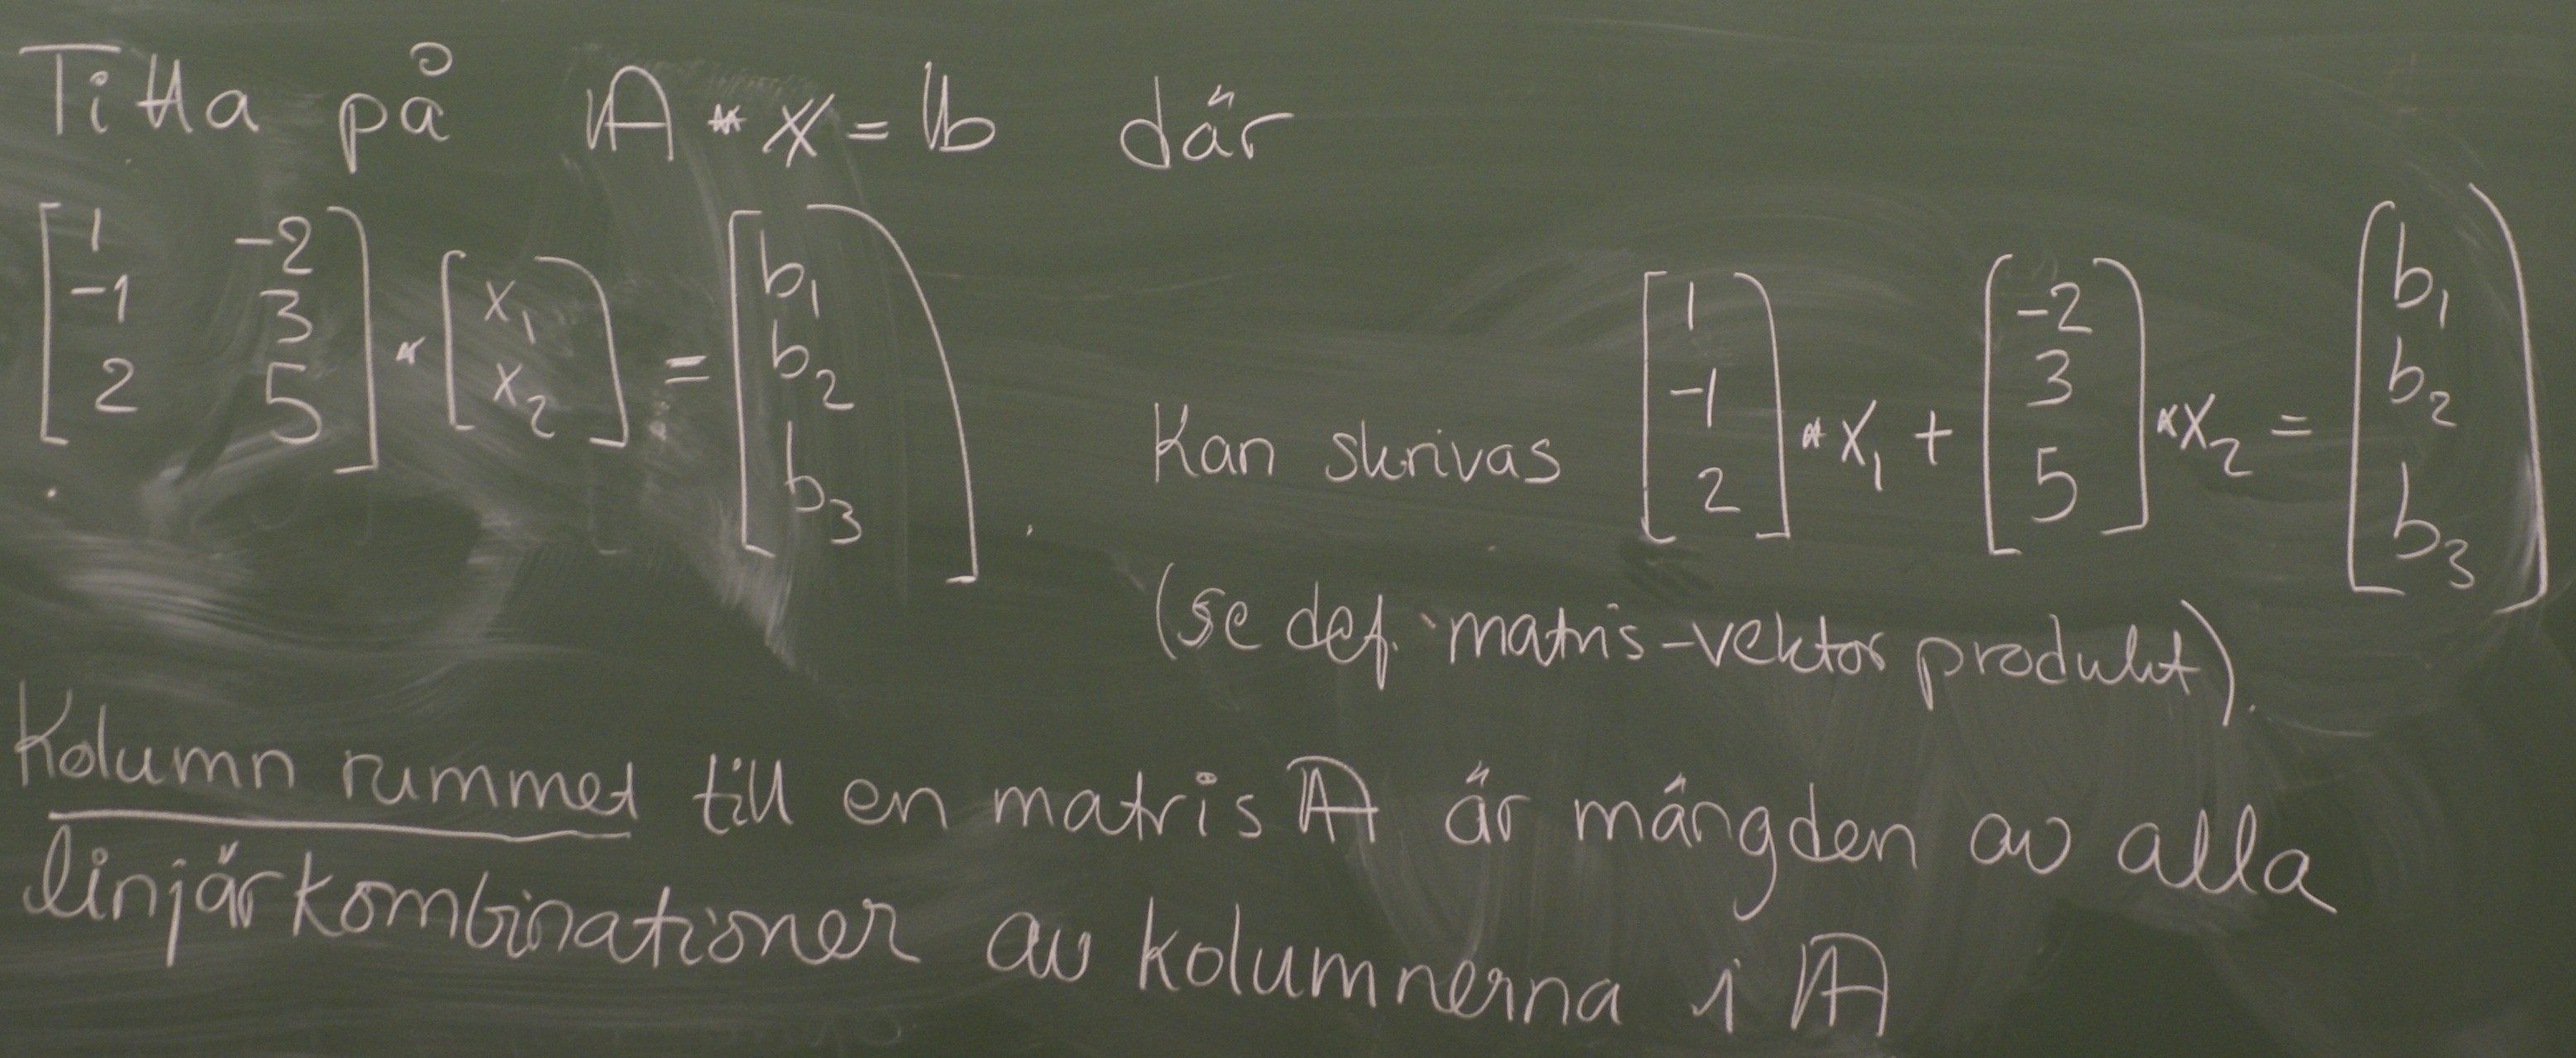 Titta på 𝔸 * 𝕩 = 𝕓 där
[1 -2; -1 3; 2 5] * [x₁; x₂] = [b₁; b₂; b₃] .
Kan skrivas [1; -1; 2] * x₁ + [-2; 3; 5] * x₂ = [b₁; b₂; b₃]
(se def. matris-vektor produkt).
Kolumn rummet till en matris 𝔸 är mängden av alla
linjärkombinationer av kolumnerna i 𝔸